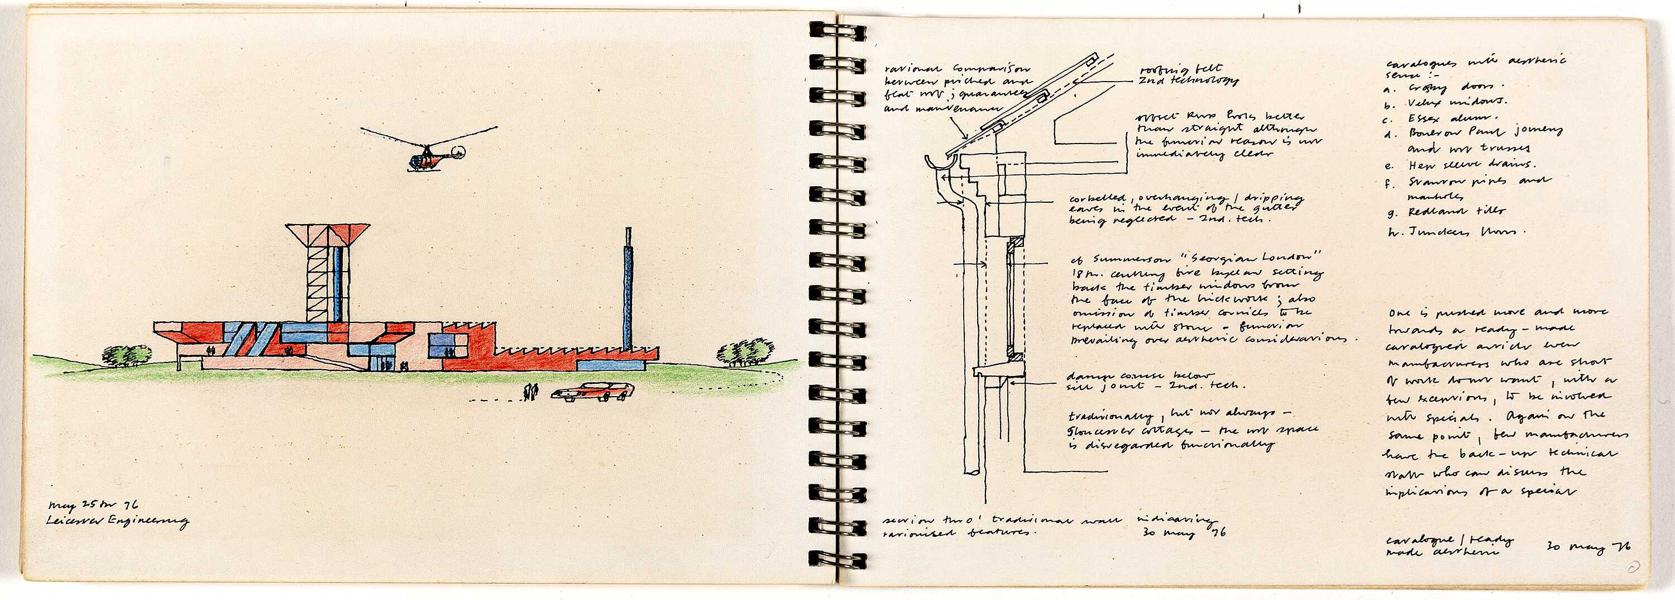 may 25th 76
Leicester Engineering
rational comparison
between pitched and
flat roof ; guarantees
and maintenance
roofing felt
2nd technology
offset Russ holes better
than straight although
the function reason is not
immediately clear
corbelled, overhanging / dripping
eaves in the event of the gutter
being neglected – 2nd. tech.
cf Summerson "Georgian London"
18th. century fire byelaw setting
back the timber windows from
the face of the brickwork ; also
omission of timber cornices to be
replaced with stone – function
prevailing over aesthetic considerations.
damp course below
sill joint – 2nd. tech.
traditionally, but not always –
Gloucester cottages – the roof space
is disregarded functionally
section thro' traditional wall indicating
rationised features. 30 may 76
catalogues with aesthetic
sense :-
a. Crosby doors.
b. Velux windows.
c. Essex alum.
d. Boulton Paul joinery
and roof trusses
e. Hep sleeve drains.
f. Stanton pipes and
manholes
g. Redland tiles
h. Junckers floors.
One is pushed more and more
towards a ready-made
catalogued article even
manufacturers who are short
of work do not want, with a
few exceptions, to be involved
with specials. Again on the
same point, few manufacturers
have the back-up technical
staff who can discuss the
implications of a special
catalogue / ready
made aesthetic 30 may 76